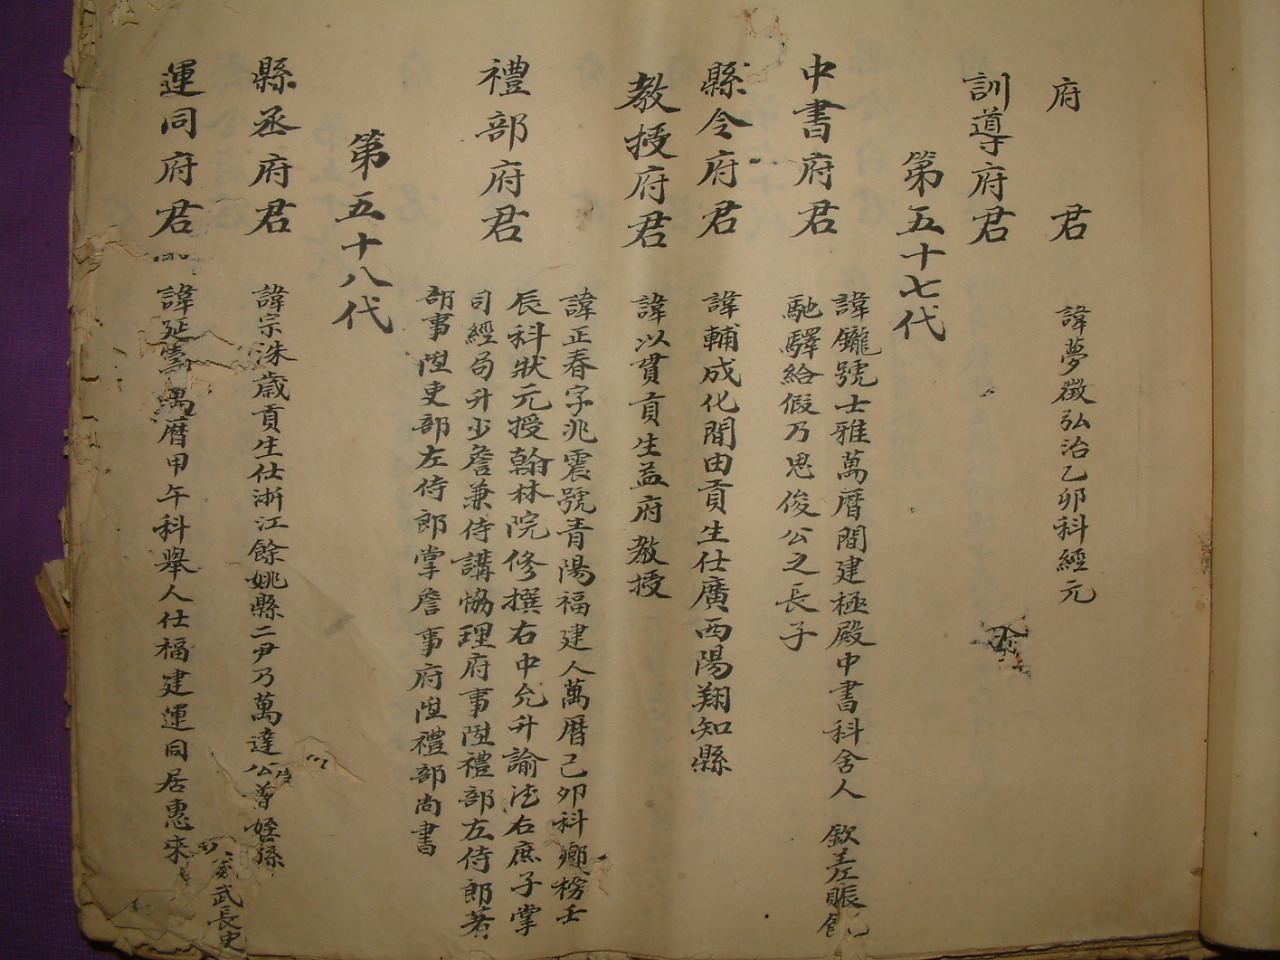 府君 諱夢徵弘治乙卯科經元
訓導府君
第五十七代
中書府君 諱鑨號士雅萬曆間建極殿中書科舍人 欽差賑
馳驛給假乃思俊公之長子
縣令府君 諱輔成化間由貢生仕廣西陽翔知縣
教授府君 諱以貫貢生益府教授
禮部府君 諱正春字兆震號青陽福建人萬曆己卯科鄉榜壬
辰科狀元授翰林院修撰右中允升諭德右庶子掌
司經局升少詹兼侍講協理府事陞禮部左侍郎署
部事陞吏部左侍郎掌詹事府陞禮部尚書
第五十八代
縣丞府君 諱宗洙歲貢生仕浙江餘姚縣二尹乃萬達公曾姪孫
運同府君 諱延 萬曆甲午科舉人仕福建運同居惠來
武長史